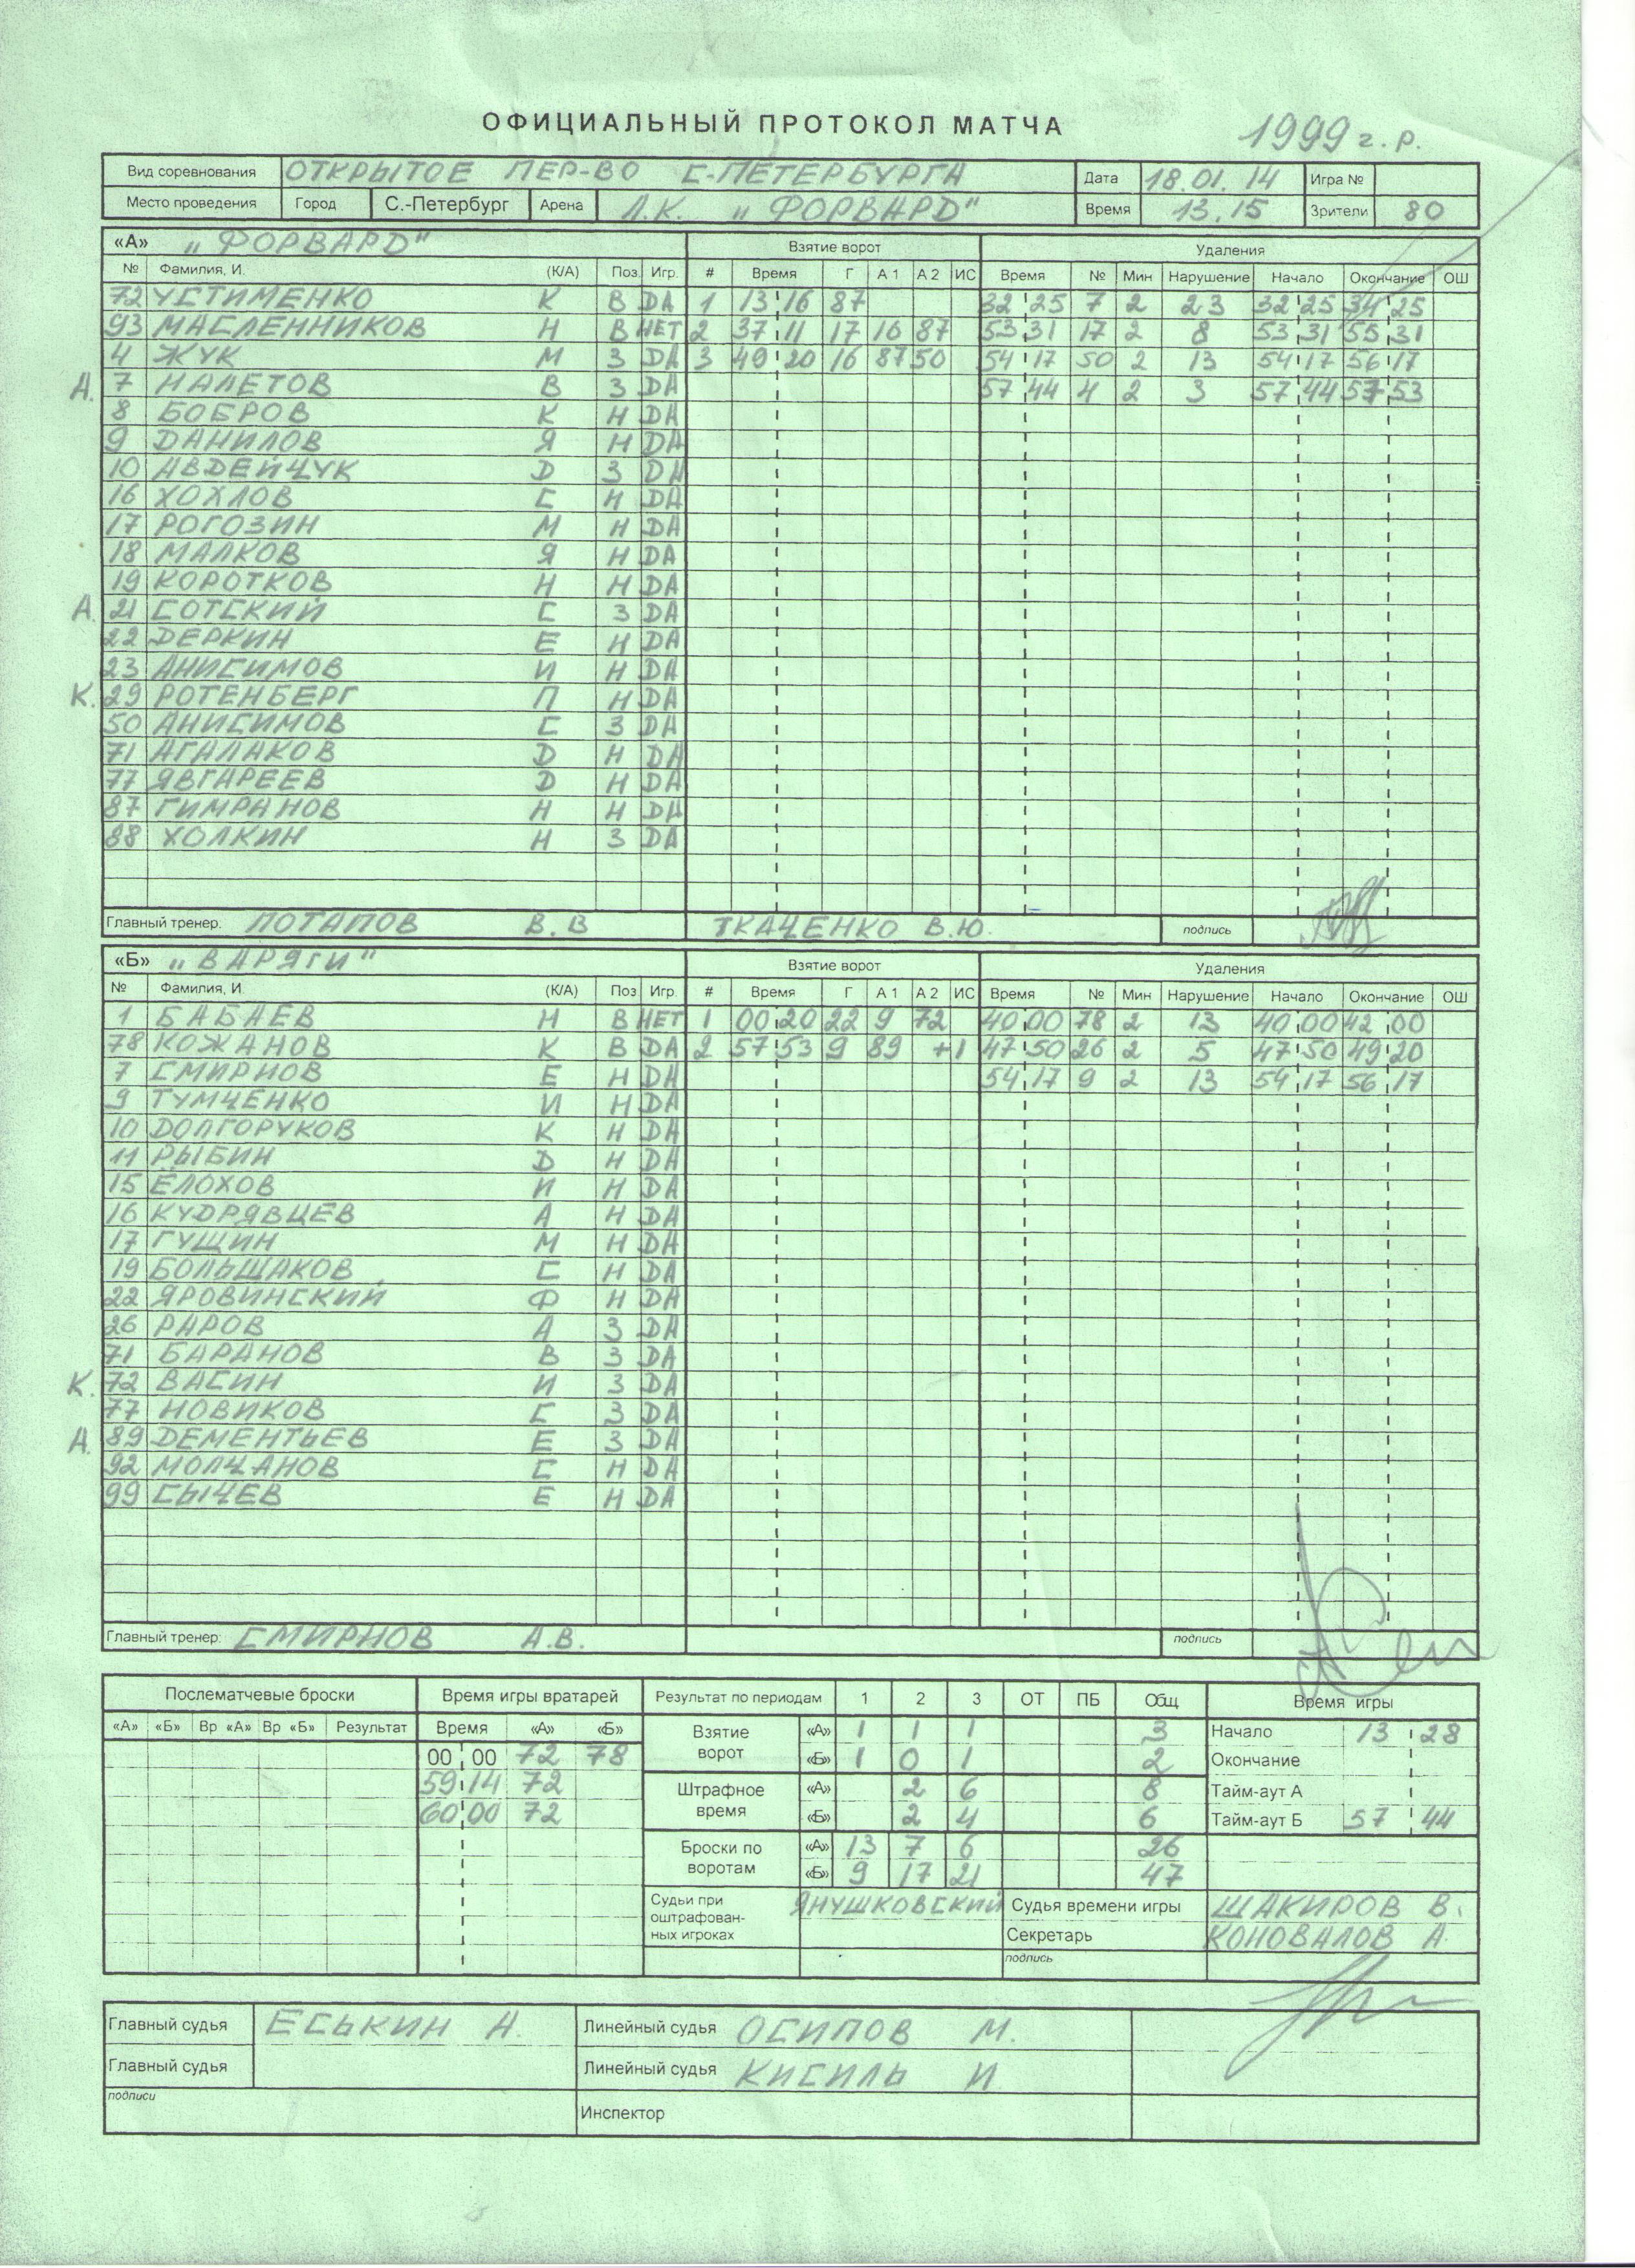 ОФИЦИАЛЬНЫЙ ПРОТОКОЛ МАТЧА
1999 г. р.
Вид соревнования ОТКРЫТОЕ ПЕР-ВО С-ПЕТЕРБУРГА Дата 18.01.14 Игра №
Место проведения Город С.-Петербург Арена Л.К. „ФОРВАРД" Время 13.15 Зрители 80
«А» „ФОРВАРД" Взятие ворот Удаления
№ Фамилия, И. (К/А) Поз Игр. # Время Г А 1 А 2 ИС Время № Мин Нарушение Начало Окончание ОШ
72 УСТИМЕНКО К В DA 1 13 16 87 32 25 7 2 23 32 25 34 25
93 МАСЛЕННИКОВ Н В НЕТ 2 37 11 17 16 87 53 31 17 2 8 53 31 55 31
4 ЖУК М З DA 3 49 20 16 87 50 54 17 50 2 13 54 17 56 17
А. 7 НАЛЕТОВ В З DA 57 44 4 2 3 57 44 57 53
8 БОБРОВ К Н DA
9 ДАНИЛОВ Я Н DA
10 АВДЕЙЧУК D З DA
16 ХОХЛОВ С Н DA
17 РОГОЗИН М Н DA
18 МАЛКОВ Я Н DA
19 КОРОТКОВ Н Н DA
А. 21 СОТСКИЙ С З DA
22 ДЕРКИН Е Н DA
23 АНИСИМОВ И Н DA
К. 29 РОТЕНБЕРГ П Н DA
50 АНИСИМОВ С З DA
71 АГАЛАКОВ D Н DA
77 ЯВГАРЕЕВ D Н DA
87 ГИМРАНОВ Н Н DA
88 ХОЛКИН Н З DA
Главный тренер: ПОТАПОВ В.В ТКАЧЕНКО В.Ю. подпись
«Б» „ВАРЯГИ" Взятие ворот Удаления
№ Фамилия, И (К/А) Поз Игр. # Время Г А 1 А 2 ИС Время № Мин Нарушение Начало Окончание ОШ
1 БАБАЕВ Н В НЕТ 1 00 20 22 9 72 40 00 78 2 13 40 00 42 00
78 КОЖАНОВ К В DA 2 57 53 9 89 +1 47 50 26 2 5 47 50 49 20
7 СМИРНОВ Е Н DA 54 17 9 2 13 54 17 56 17
9 ТУМЧЕНКО И Н DA
10 ДОЛГОРУКОВ К Н DA
11 РЫБИН D Н DA
15 ЁЛОХОВ И Н DA
16 КУДРЯВЦЕВ А Н DA
17 ГУЩИН М Н DA
19 БОЛЬШАКОВ С Н DA
22 ЯРОВИНСКИЙ Ф Н DA
26 РАРОВ А З DA
71 БАРАНОВ В З DA
К. 72 ВАСИН И З DA
77 НОВИКОВ С З DA
А. 89 ДЕМЕНТЬЕВ Е З DA
92 МОЛЧАНОВ С Н DA
99 СЫЧЕВ Е Н DA
Главный тренер: СМИРНОВ А.В. подпись
Послематчевые броски Время игры вратарей Результат по периодам 1 2 3 ОТ ПБ Общ Время игры
«А» «Б» Вр «А» Вр «Б» Результат Время «А» «Б» Взятие ворот «А» 1 1 1 3 Начало 13 28
00 00 72 78 «Б» 1 0 1 2 Окончание
59 14 72 Штрафное время «А» 2 6 8 Тайм-аут А
60 00 72 «Б» 2 4 6 Тайм-аут Б 57 44
Броски по воротам «А» 13 7 6 26
«Б» 9 17 21 47
Судьи при оштрафован-ных игроках ЯНУШКОВСКИЙ Судья времени игры ШАКИРОВ В.
Секретарь КОНОВАЛОВ А.
подпись
Главный судья ЕСЬКИН А. Линейный судья ОСИПОВ М.
Главный судья Линейный судья КИСИЛЬ И
подписи
Инспектор